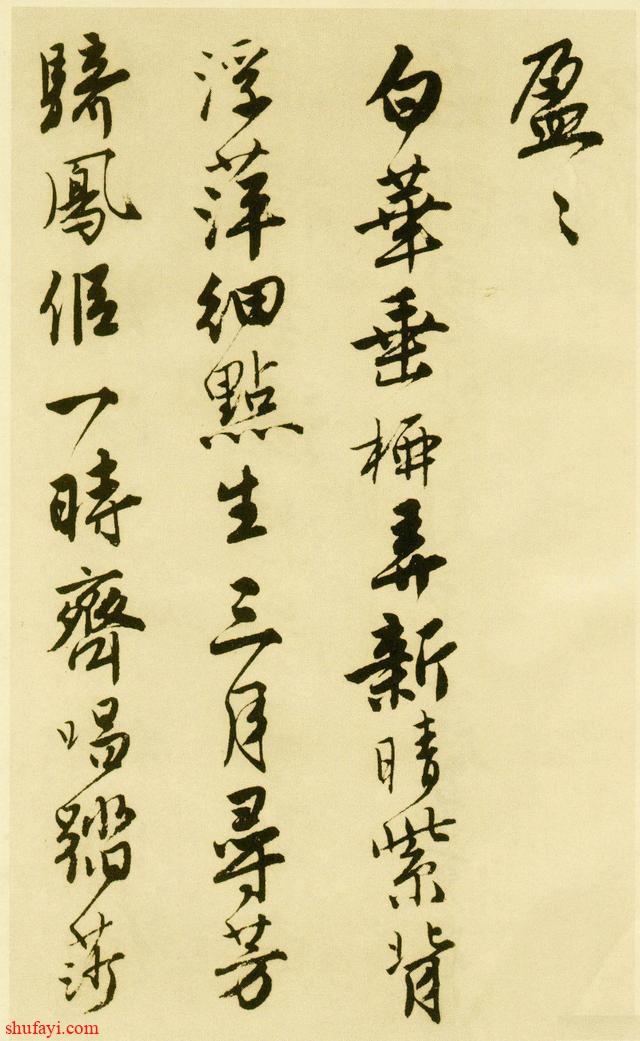 盈〻
白華垂柳弄新晴紫背
浮萍細點生三月尋芳
騎鳳侶一時齊唱踏莎
shufayi.com